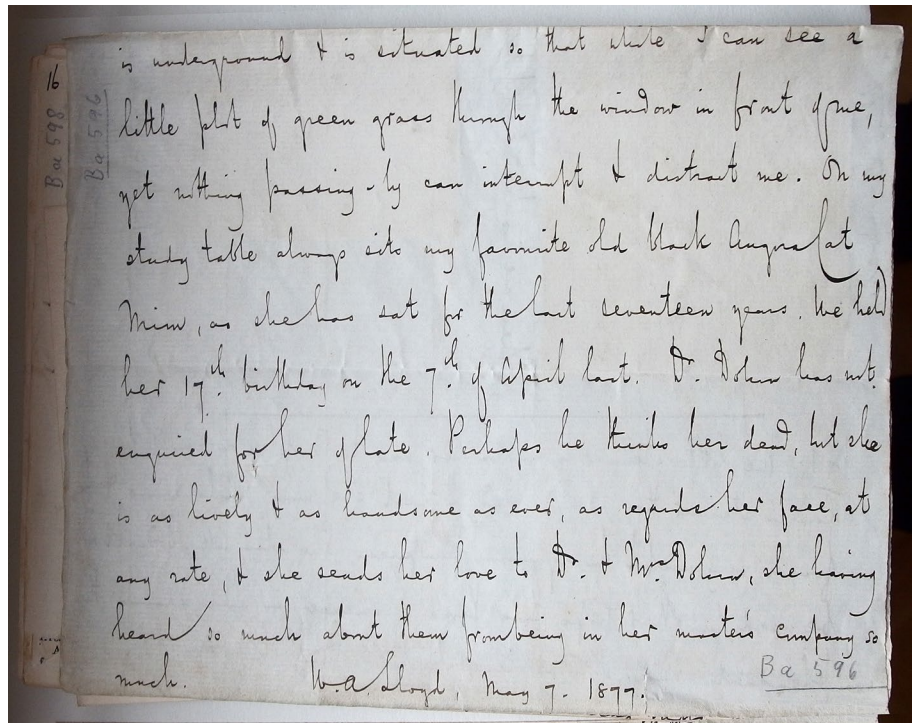 is underground & is situated so that while I can see a
little plot of green grass through the window in front of me,
yet nothing passing-by can interrupt & distract me. On my
study table always sits my favourite old black Angora Cat
Mim, as she has sat for the last seventeen years. We held
her 17th. birthday on the 7th. of April last. Dr. Dohrn has not
enquired for her of late. Perhaps he thinks her dead, but she
is as lively & as handsome as ever, as regards her face, at
any rate, & she sends her love to Dr. & Mrs Dohrn, she having
heard so much about them from being in her master's company so
much. W.A. Lloyd, May 7. 1877.
Ba 596
16
Ba 598
Ba 596